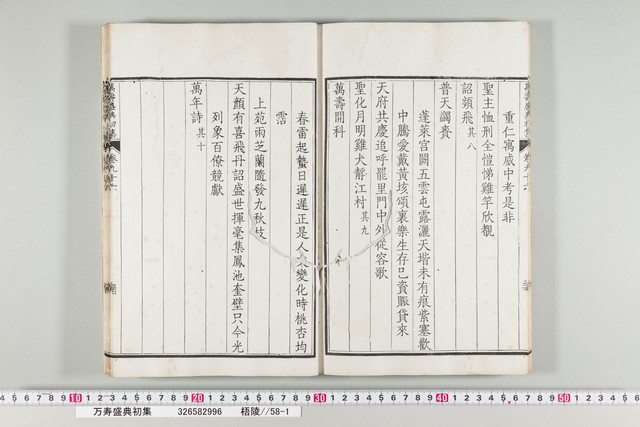 重仁寓威中考是非
聖主恤刑全愷悌雞竿欣覩
詔頻飛其八
普天蠲賚
蓬萊宮闕五雲屯露灑天堦未有痕紫塞歡
中騰愛戴黃垓頌裏樂生存已資賑貸來
天府共慶追呼罷里門中外從容歌
聖化月明雞犬靜江村其九
萬壽開科
春雷起蟄日遲遲正是人文變化時桃杏均
霑
上苑雨芝蘭隨發九秋枝
天顏有喜飛丹詔盛世揮毫集鳳池奎壁只今光
列象百僚競獻
萬年詩其十
10 20 30 40 50
万寿盛典初集 326582996 梧陵//58-1